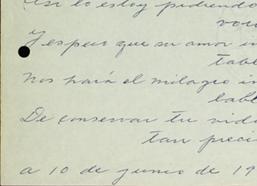 Así lo estoy pidiendo
voc
Y espero que su amor in
tabl
Nos hará el milagro in
babl
De conservar tu vida
tan preci
a 10 de junio de 19